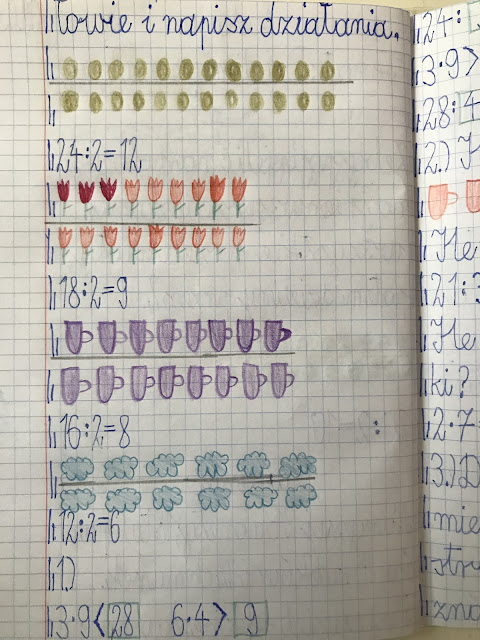 łowie i napisz działania.
24:2=12
18:2=9
16:2=8
:
12:2=6
1)
3·9<28 6·4>9
24:
3·9>
28:4
2.)
21:3
ki?
2·7=
3.)
mie